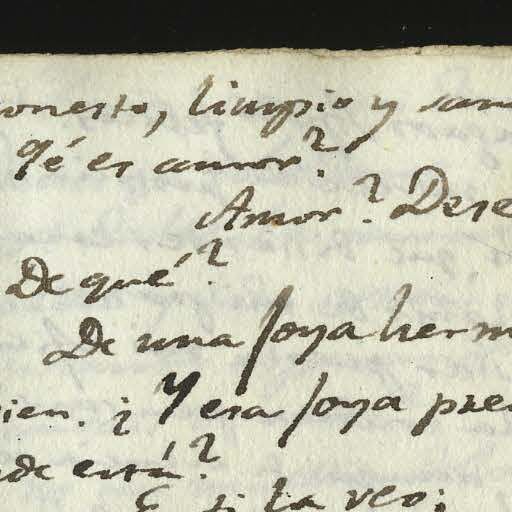 onesto, limpio y san
qé es amor?
Amor? Dese
De qué?
De una Joya herm
ien. ¿Y esa Joya pre
de está?
si la veo;